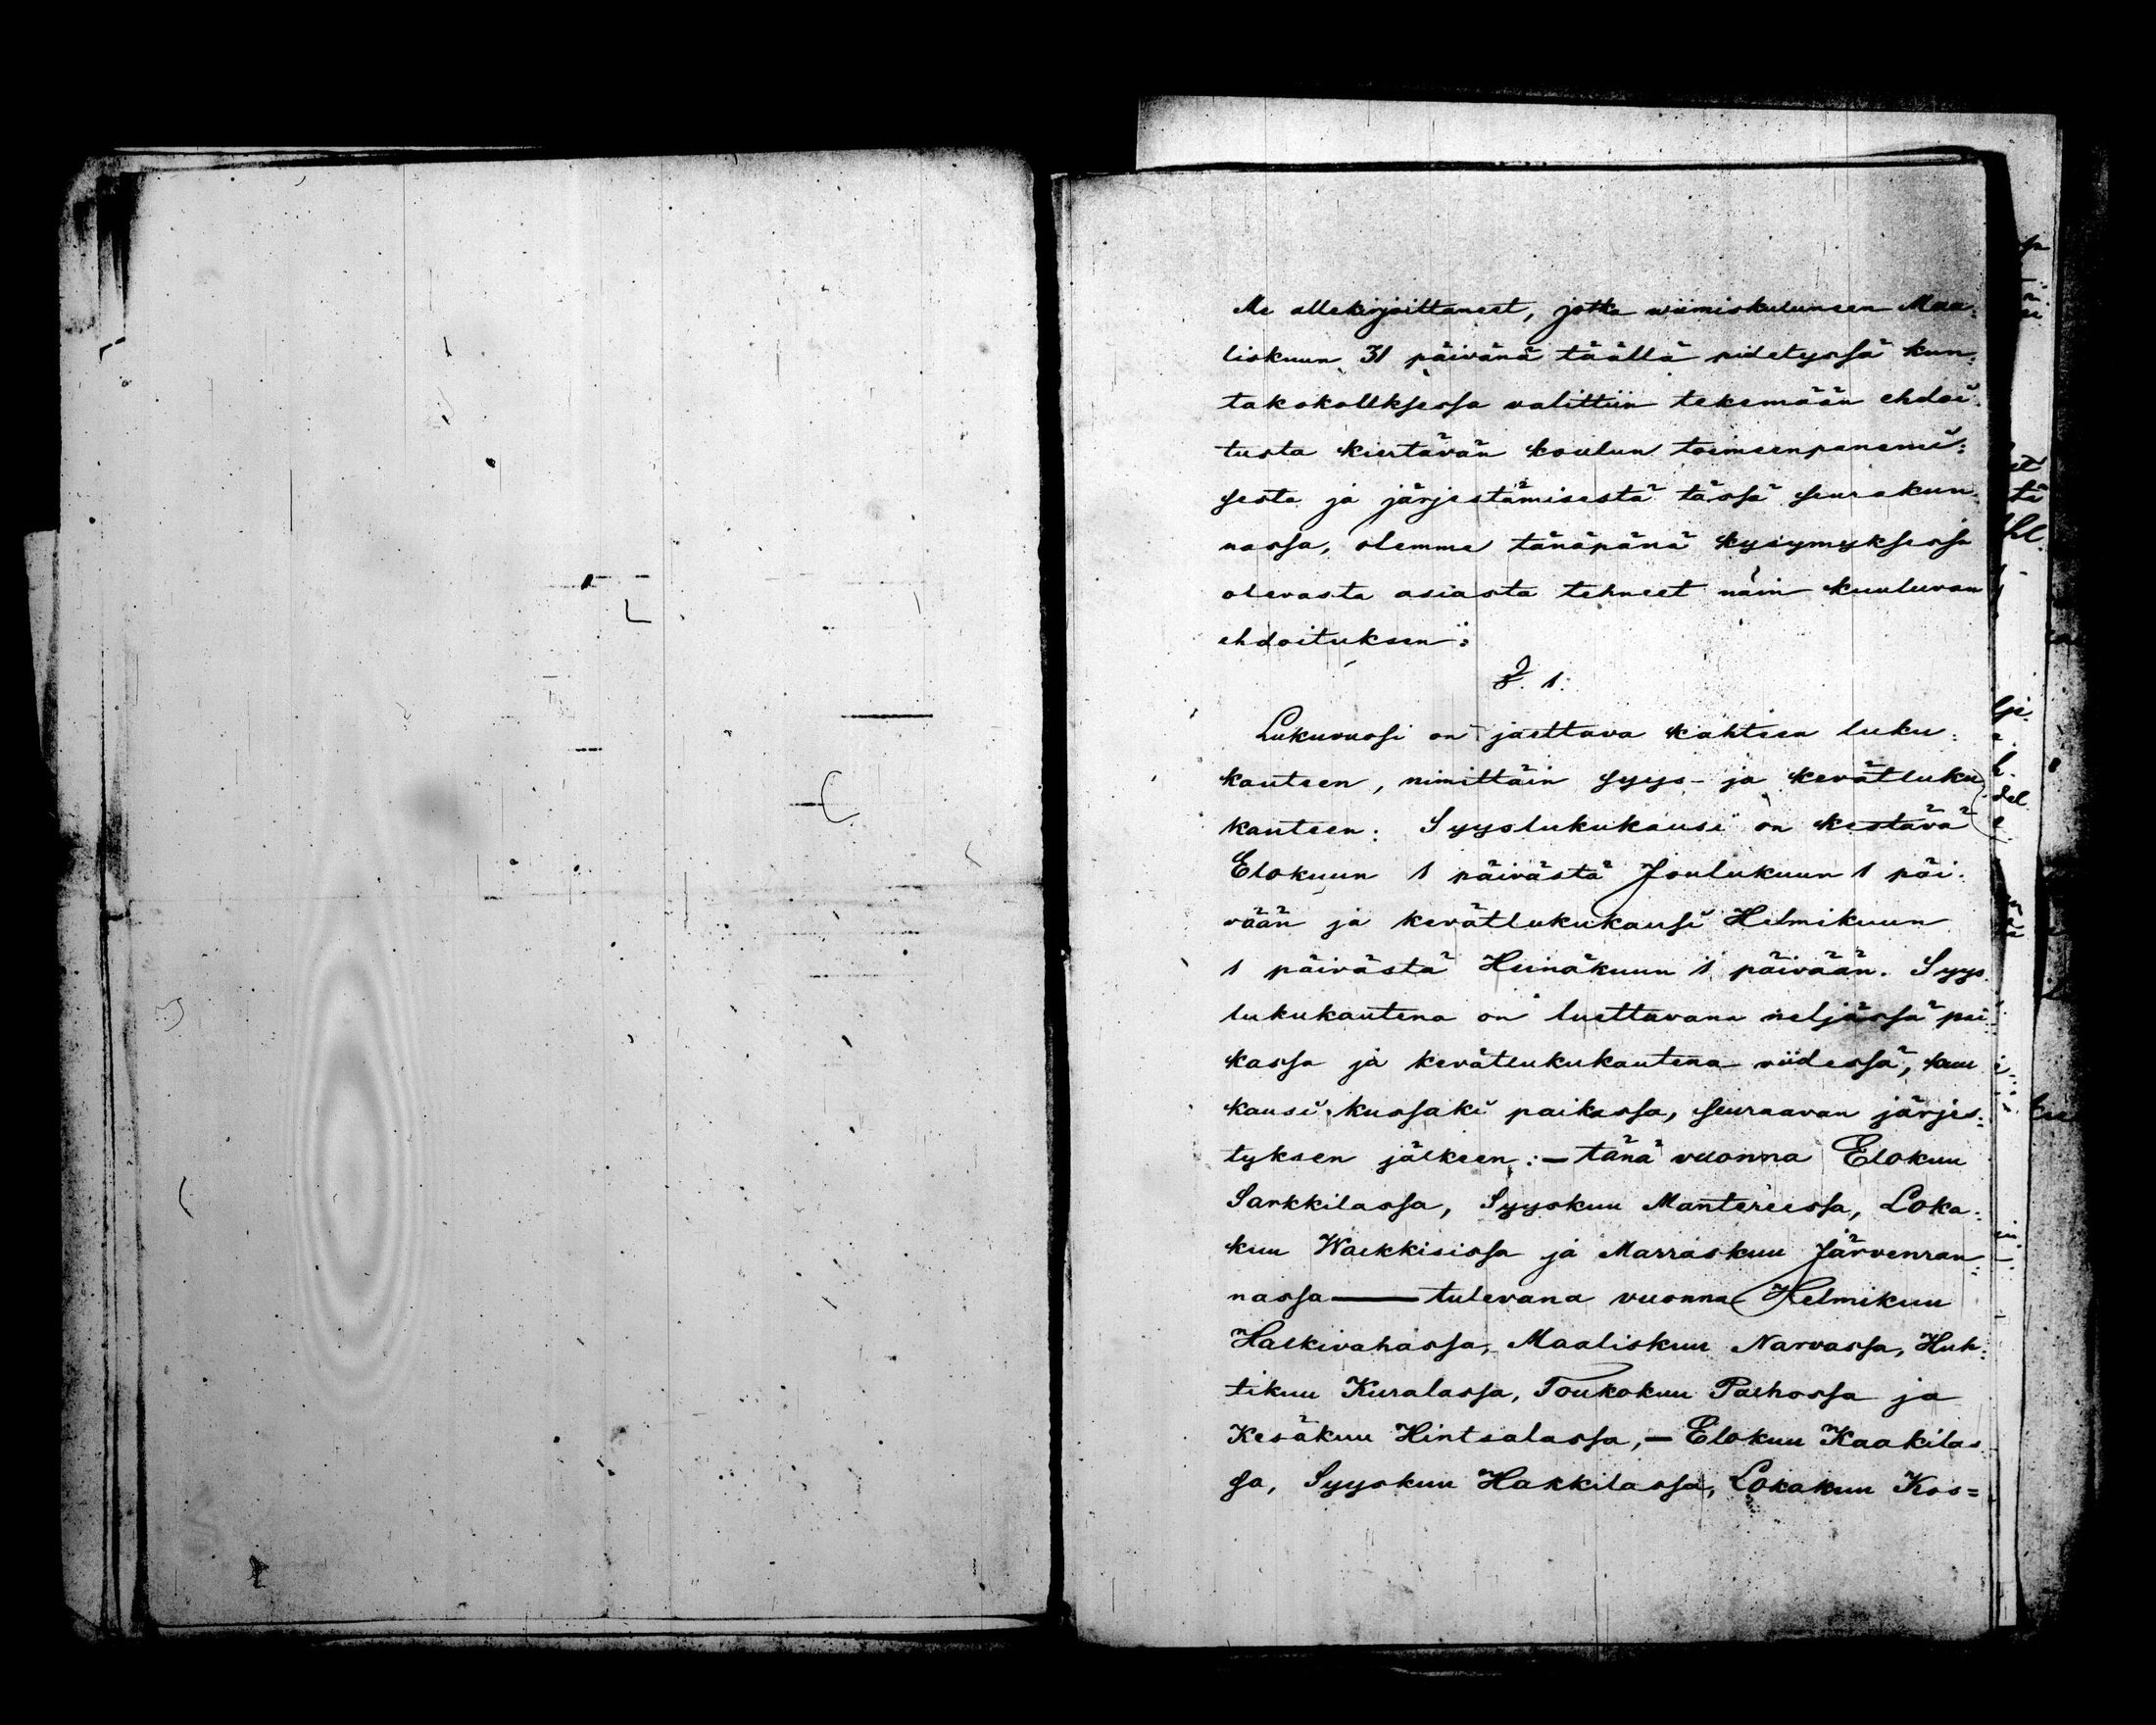 Me allekirjoittaneet, jotka wiimiskuluneen Maa-
liskuun 31 päivänä täällä pidetyssä kun-
takokouksessa valittiin tekemään ehdoi-
tusta kiertävän koulun toimeenpanemi-
sesta ja järjestämisestä tässä seurakun-
nassa, olemme tänäpänä kysymyksessä
olevasta asiasta tehneet näin kuuluvan
ehdoituksen:
§. 1.
Lukuvuosi on jaettava kahteen luku-
kauteen, nimittäin syys- ja kevätluku
kauteen. Syyslukukausi on kestävä
Elokuun 1 päivästä Joulukuun 1 päi-
vään ja kevätlukukausi Helmikuun
1 päivästä Heinäkuun 1 päivään. Syys
lukukautena on luettavana neljässä pai
kassa ja kevätlukukautena viidessä, kuu
kausi kussaki paikassa, seuraavan järjes-
tyksen jälkeen: — tänä vuonna Elokuu
Sarkkilassa, Syyskuu Mantereessa, Loka-
kuu Walkkisissa ja Marraskuu Järvenran-
nassa — tulevana vuonna Helmikuu
Halkivahassa, Maaliskuu Narvassa, Huh-
tikuu Kuralassa, Toukokuu Palhossa ja
Kesäkuu Hintsalassa, — Elokuu Kaakilas
sa, Syyskuu Hakkilassa, Lokakuu Kos=